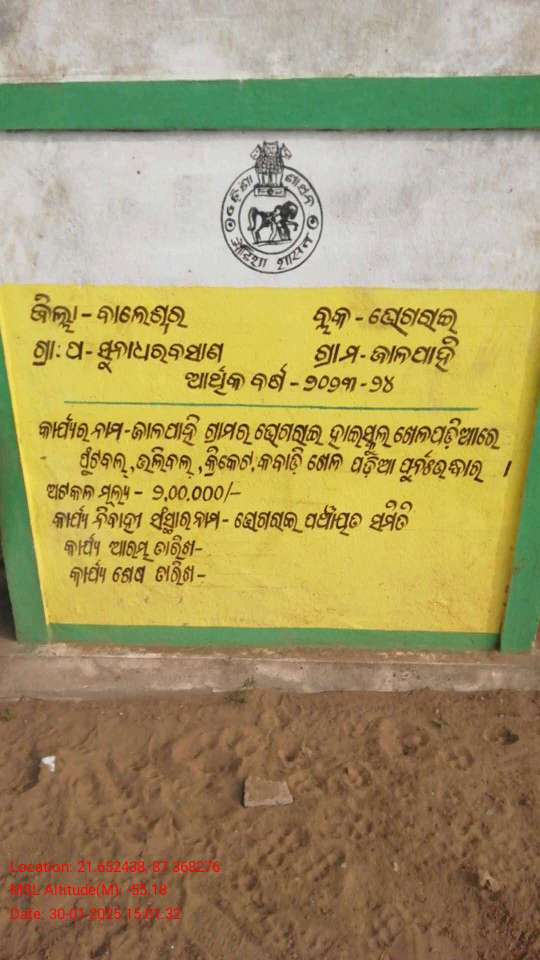 ଓଡ଼ିଶା ଶାସନ
ओडिशा शासन
ଜିଲ୍ଲା - ବାଲେଶ୍ୱର
ବ୍ଲକ - ଭୋଗରାଇ
ଗ୍ରା: ପ - ସୁନାଧରବସାଣ
ଗ୍ରାମ - ଜାଳପାହି
ଆର୍ଥିକ ବର୍ଷ - ୨୦୨୩ - ୨୪
କାର୍ଯ୍ୟର ନାମ - ଜାଳପାହି ଗ୍ରାମର ଭୋଗରାଇ ହାଇସ୍କୁଲ ଖେଳପଡ଼ିଆରେ
ଫୁଟବଲ୍, ଭଲିବଲ୍, କ୍ରିକେଟ, କବାଡ଼ି ଖେଳ ପଡ଼ିଆ ପୁର୍ନଃଉଦ୍ଧାର ।
ଅଟକଳ ମୂଲ୍ୟ - ୨,00,000/-
କାର୍ଯ୍ୟ ନିବାହୀ ସଂସ୍ଥାର ନାମ - ଭୋଗରାଇ ପଞ୍ଚାୟତ ସମିତି
କାର୍ଯ୍ୟ ଆରମ୍ଭ ତାରିଖ -
କାର୍ଯ୍ୟ ଶେଷ ତାରିଖ -
Location: 21.652438, 87.368276
MSL Altitude(M): -55.18
Date: 30-01-2025 15:01:32